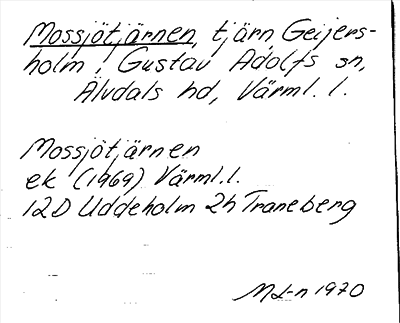 Mossjötjärnen, tjärn, Geijers-
holm, Gustav Adolfs sn,
Älvdals hd, Värml. l.
Mossjötjärnen
ek (1969) Värml. l.
12D Uddeholm 2h Traneberg
1970